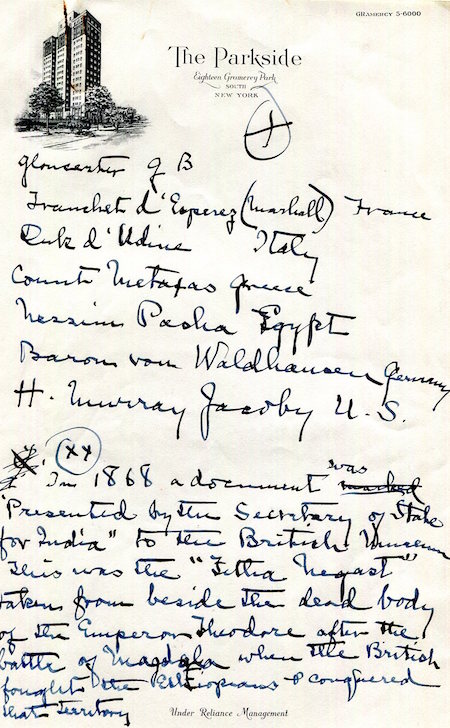 GRAMERCY 5-6000
The Parkside
Eighteen Gramercy Park
SOUTH
NEW YORK
+
Gloucester G B
Franchet d'Esperez (Marshall) France
Duk d'Udine Italy
Count Metaxas Greece
Nessim Pasha Egypt
Baron von Waldhausen Germany
H. Murray Jacoby U. S.
++
In 1868 a document "was marked
"Presented by the Secretary of State
for India" to the British Museum
This was the "Fetha Negast"
taken from beside the dead body
of the Emperor Theodore after the
battle of Magdala when the British
fought the Ethiopians & conquered
that territory
Under Reliance Management